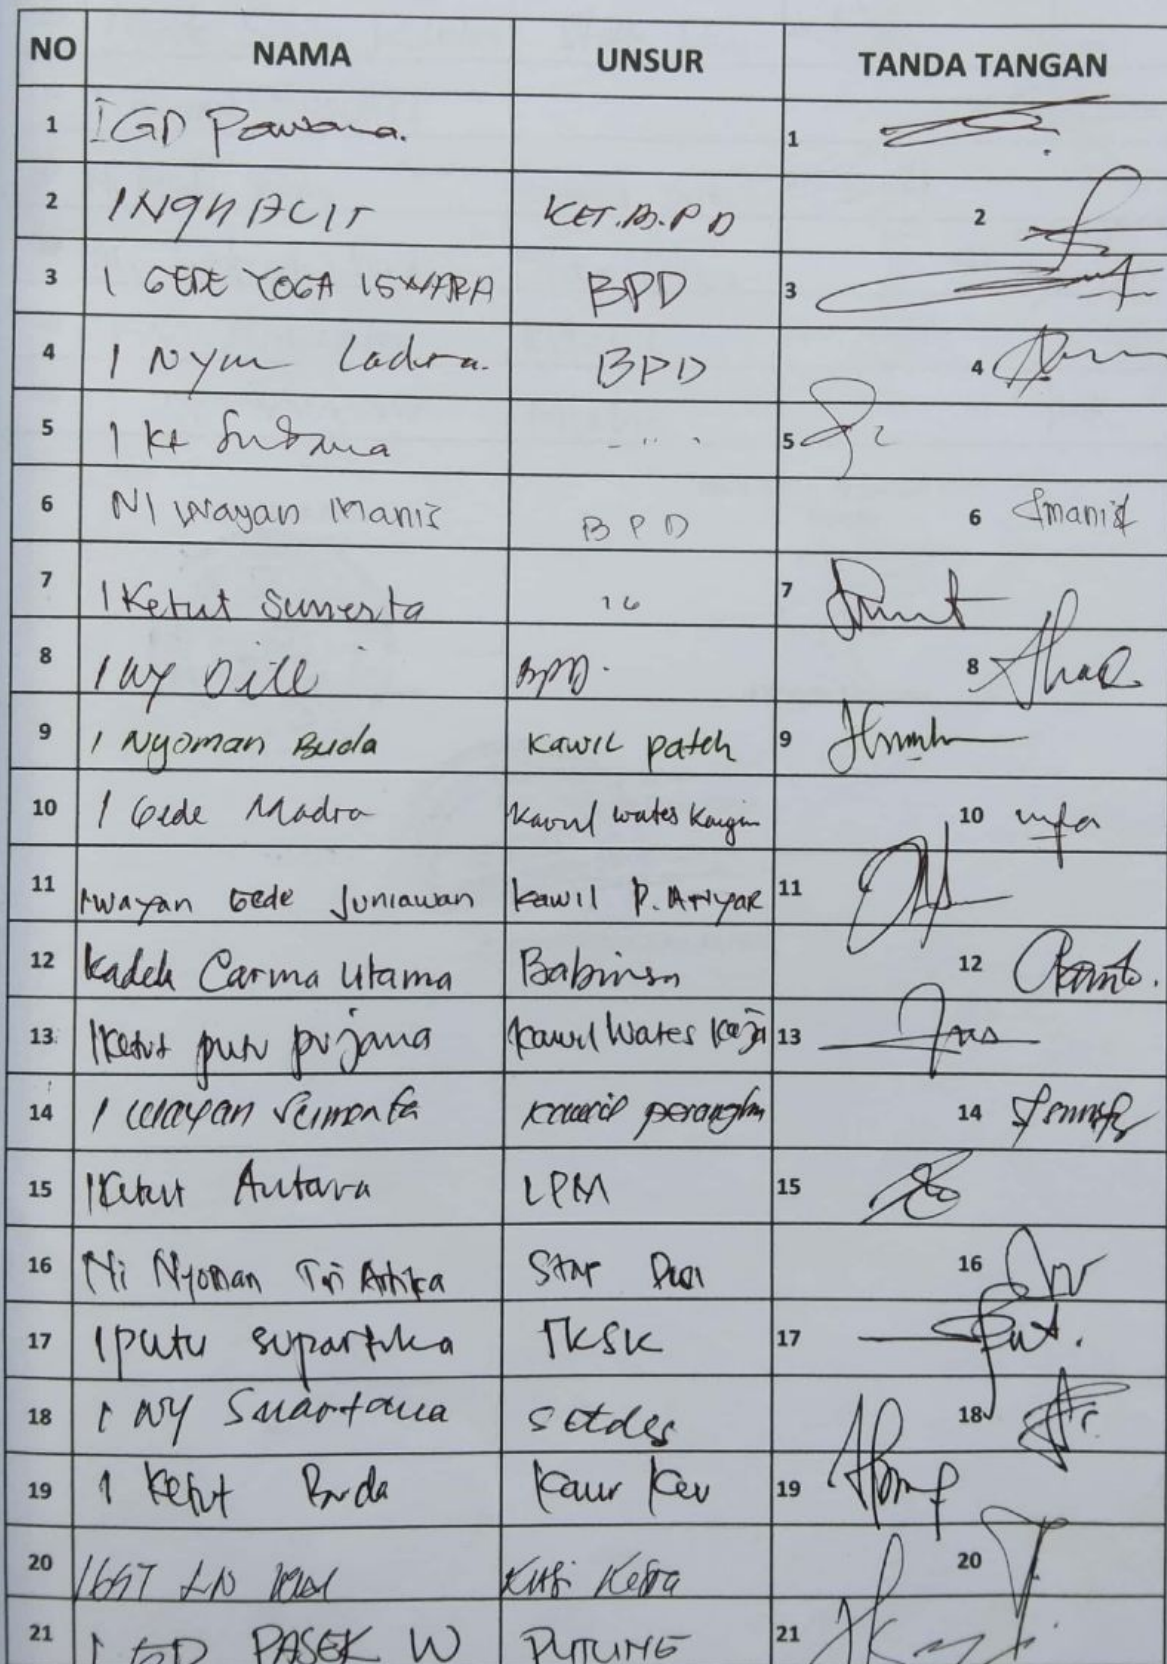 NO NAMA UNSUR TANDA TANGAN
1 IGD Pawana. 1
2 KET.B.P D 2
3 I GEDE YOGA ISWARA BPD 3
4 I Nym Ladra. BPD 4
5 I Kt 5
6 NI Wayan Manis B P D 6 manis
7 I Ketut Sumerta 7
8 I WY Dill BPD. 8
9 I Nyoman Buda Kawil pateh 9
10 I Gede Madra Kawil Wates Kangin 10
11 I Wayan Gede Juniawan Kawil P. Anyar 11
12 Kadek Carma Utama Babinsa 12
13 I Ketut putu pujana Kawil Wates Kaja 13
14 I Wayan Sumerta Kawil 14
15 I Ketut Antara LPM 15
16 Ni Nyoman Tri Artika Staf 16
17 I putu supartika TKSK 17
18 I NY Suartana Setdes 18
19 I Ketut Buda Kaur Keu 19
20 IGST 20
21 I GD PASEK W PUTUNG 21